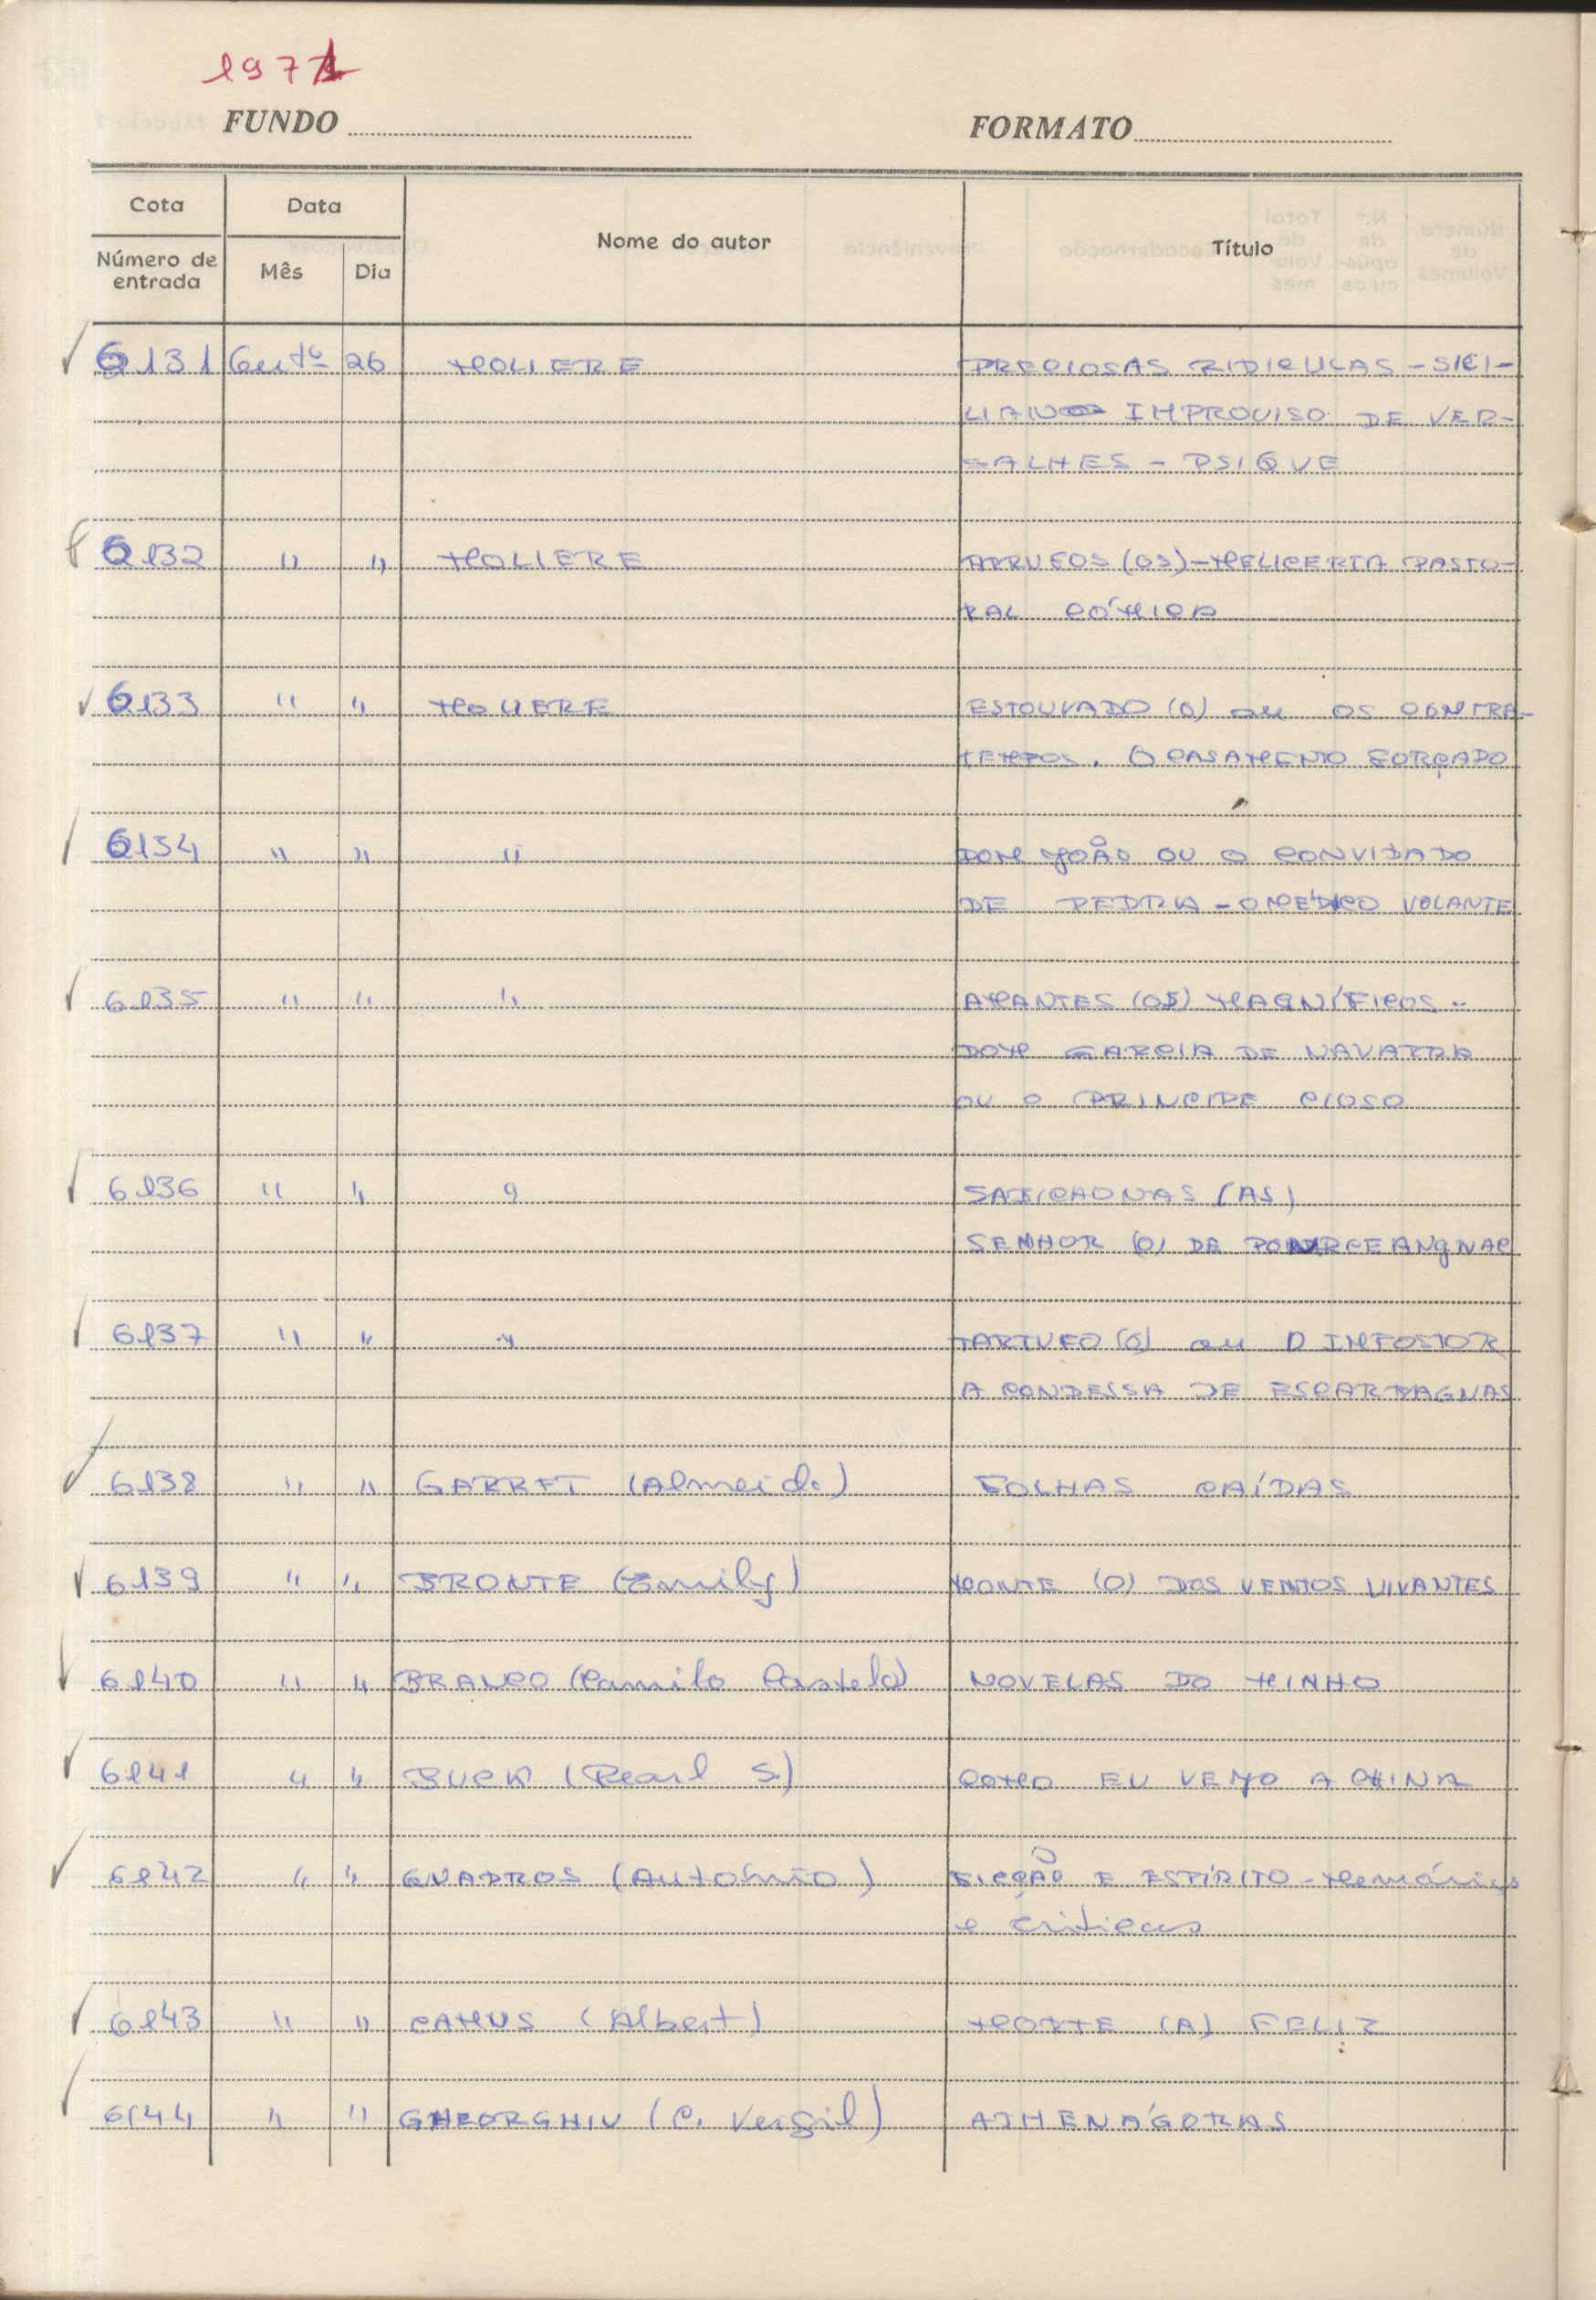 1971
FUNDO FORMATO
Cota Data Nome do autor Título
Número de entrada Mês Dia
6131 26 MOLIERE PRECIOSAS RIDICULAS - SICI-
LIANO IMPROVISO DE VER-
SALHES - PSIQUE
6132 " " MOLIERE ARRUFOS (OS) - MELICERTA PASTO-
RAL CÓMICA
6133 " " MOLIERE ESTOUVADO (O) ou OS CONTRA-
TEMPOS. O CASAMENTO FORÇADO
6134 " " " DOM JOÃO OU O CONVIDADO
DE PEDRA - O MÉDICO VOLANTE
6135 " " " AMANTES (OS) MAGNÍFICOS -
DOM GARCIA DE NAVARRA
OU O PRINCIPE CIOSO
6136 " " " SABICHONAS (AS)
SENHOR (O) DE POURCEANGNAC
6137 " " " TARTUFO (O) ou O IMPOSTOR
A CONDESSA DE ESCARBAGNAS
6138 " " GARRET (Almeida) FOLHAS CAÍDAS
6139 " " BRONTE (Emily) MONTE (O) DOS VENTOS UIVANTES
6140 " " BRANCO (Camilo Castelo) NOVELAS DO MINHO
6141 " " BUCK (Pearl S.) COMO EU VEJO A CHINA
6142 " " QUADROS (António) FICÇÃO E ESPÍRITO - Memórias
e criticas
6143 " " CAMUS (Albert) MORTE (A) FELIZ
6144 " " GHEORGHIU (C. Vergil) ATHENÁGORAS